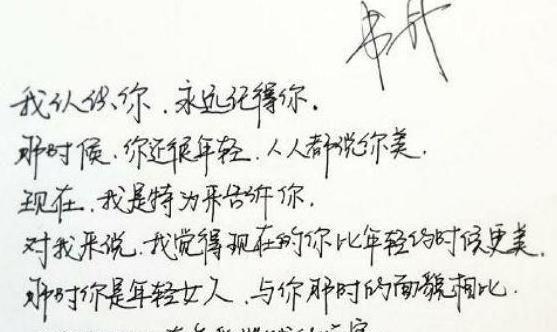 我认识你，永远记得你。
那时候，你还很年轻，人人都说你美，
现在，我是特为来告诉你，
对我来说，我觉得现在的你比年轻的时候更美，
那时你是年轻女人，与你那时的面貌相比，